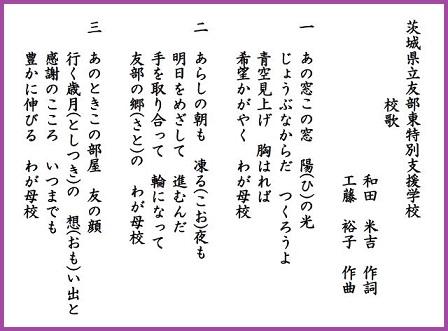 茨城県立友部東特別支援学校
校歌
和田 米吉 作詞
工藤 裕子 作曲
一 あの窓この窓 陽(ひ)の光
じょうぶなからだ つくろうよ
青空見上げ 胸はれば
希望かがやく わが母校
二 あらしの朝も 凍る(こお)夜も
明日をめざして 進むんだ
手を取り合って 輪になって
友部の郷(さと)の わが母校
三 あのときこの部屋 友の顔
行く歳月(としつき)の 想(おも)い出と
感謝のこころ いつまでも
豊かに伸びる わが母校